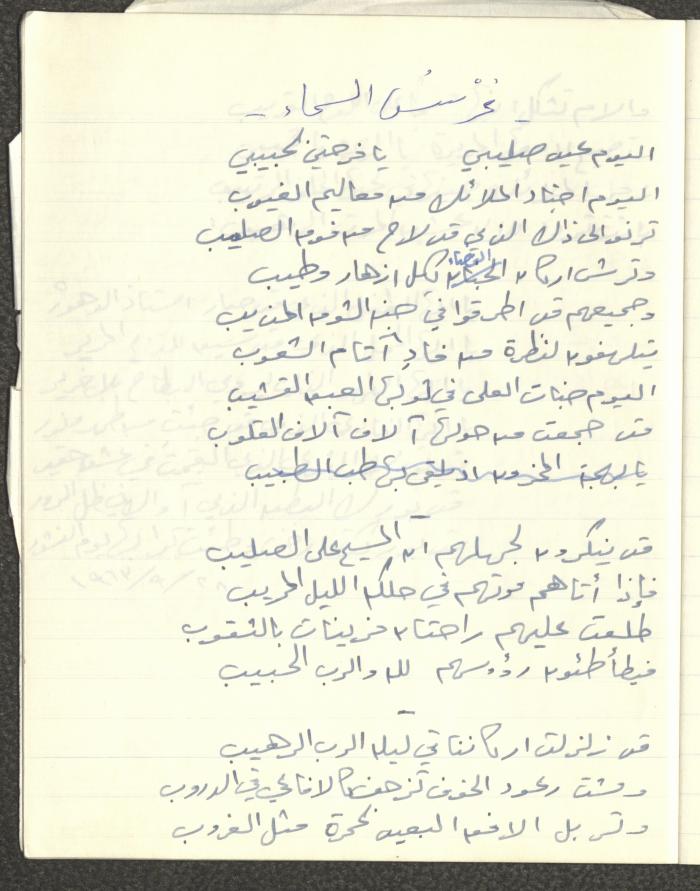 عُرْسُ السماء
اليوم عيد صليبي يا فرحتي بحبيبي
اليوم اجناد الملائك من معاليم الغيوب
ترنو الى ذاك الذي قد لاح من فوق الصليب
وترش اركان الفضاء بكل ازهار وطيب
وجميعهم قد اطرقوا في جنب الثوب
يتلهفون لنظرة من فادِ آثام الشعوب
اليوم جنات العلى في ثوبها القشيب
قد جمعت من حولها آلاف آلاف القلوب
يا لبهجة المحزون اذ يلقى بها طب الطبيب
قد ينكرون لجهلهم ان المسيح على الصليب
فإذا أتاهم موتهم في حلك الليل المريب
طلعت عليهم راحتان مزينات بالثقوب
فيطأطئون رؤوسهم للد والرب الحبيب
قد زلزلت اركاننا في ليلة الرب الرهيب
ومشت رعود الخوف تزحف كالافاعي في الدروب
وتسربل الافق البعيد بحمرة مثل الغروب